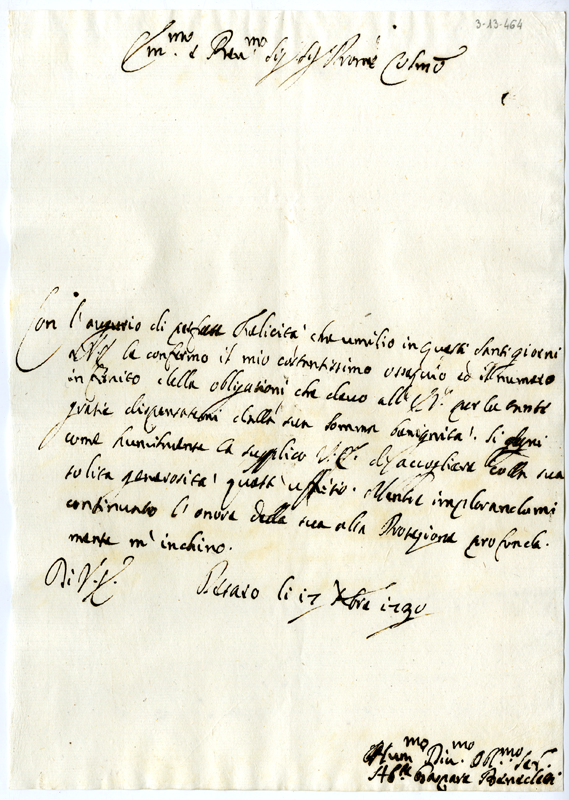 3-13-464
Em.mo e Reu.mo Sig Sig Prone Colmo
Con l'augurio di perfetta Felicità che umilio in questi Santi giorni
à V.E. le confermo il mio costantissimo ossequio ed il numero
infinito delle obligationi che devo all' E.V. per le tante
gratie dispensatemi dalla sua somma benignità. Si degni
come humilmente la supplico V.E. di accogliere colla sua
solita generosità quest'uffitio. Mentre implorandomi
continuato l'onore della sua alta Protezione profonda-
mente m'inchino.
Di V.E.
Pesaro li 17 Xbre 1730
Hum.mo Diu.mo Obl.mo Ser.
Ab.te Gaspare Benedetti